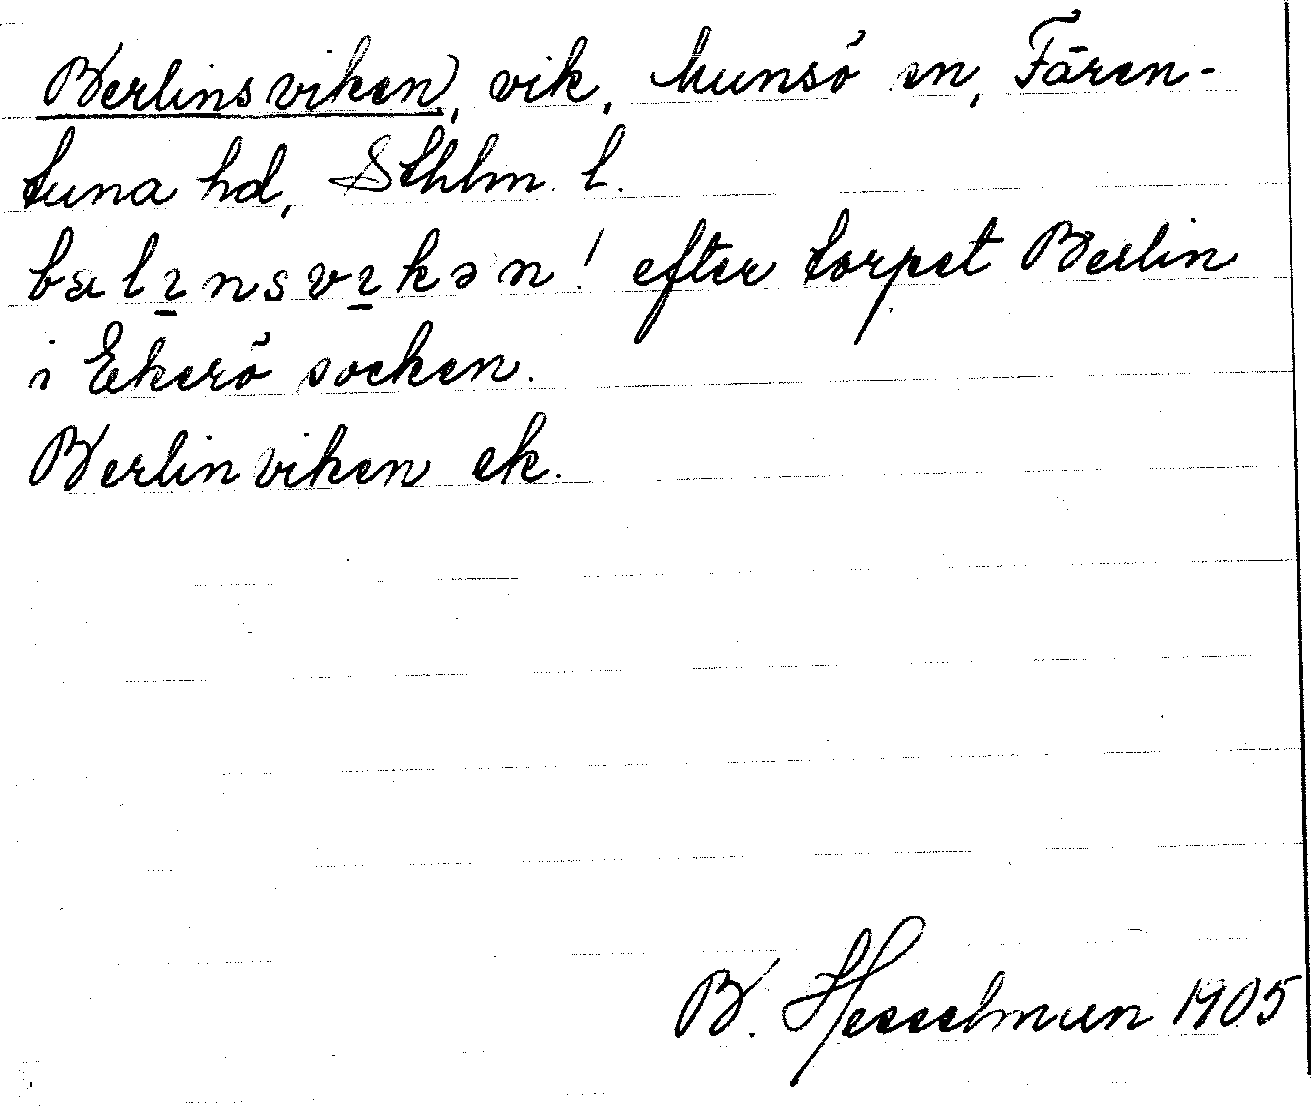 Berlinsviken, vik, Munsö sn, Fären-
tuna hd, Sthlm. l.
bælı̱nsvı̱kən! efter torpet Berlin
i Ekerö socken.
Berlinviken ek.
B. Hesselman 1905